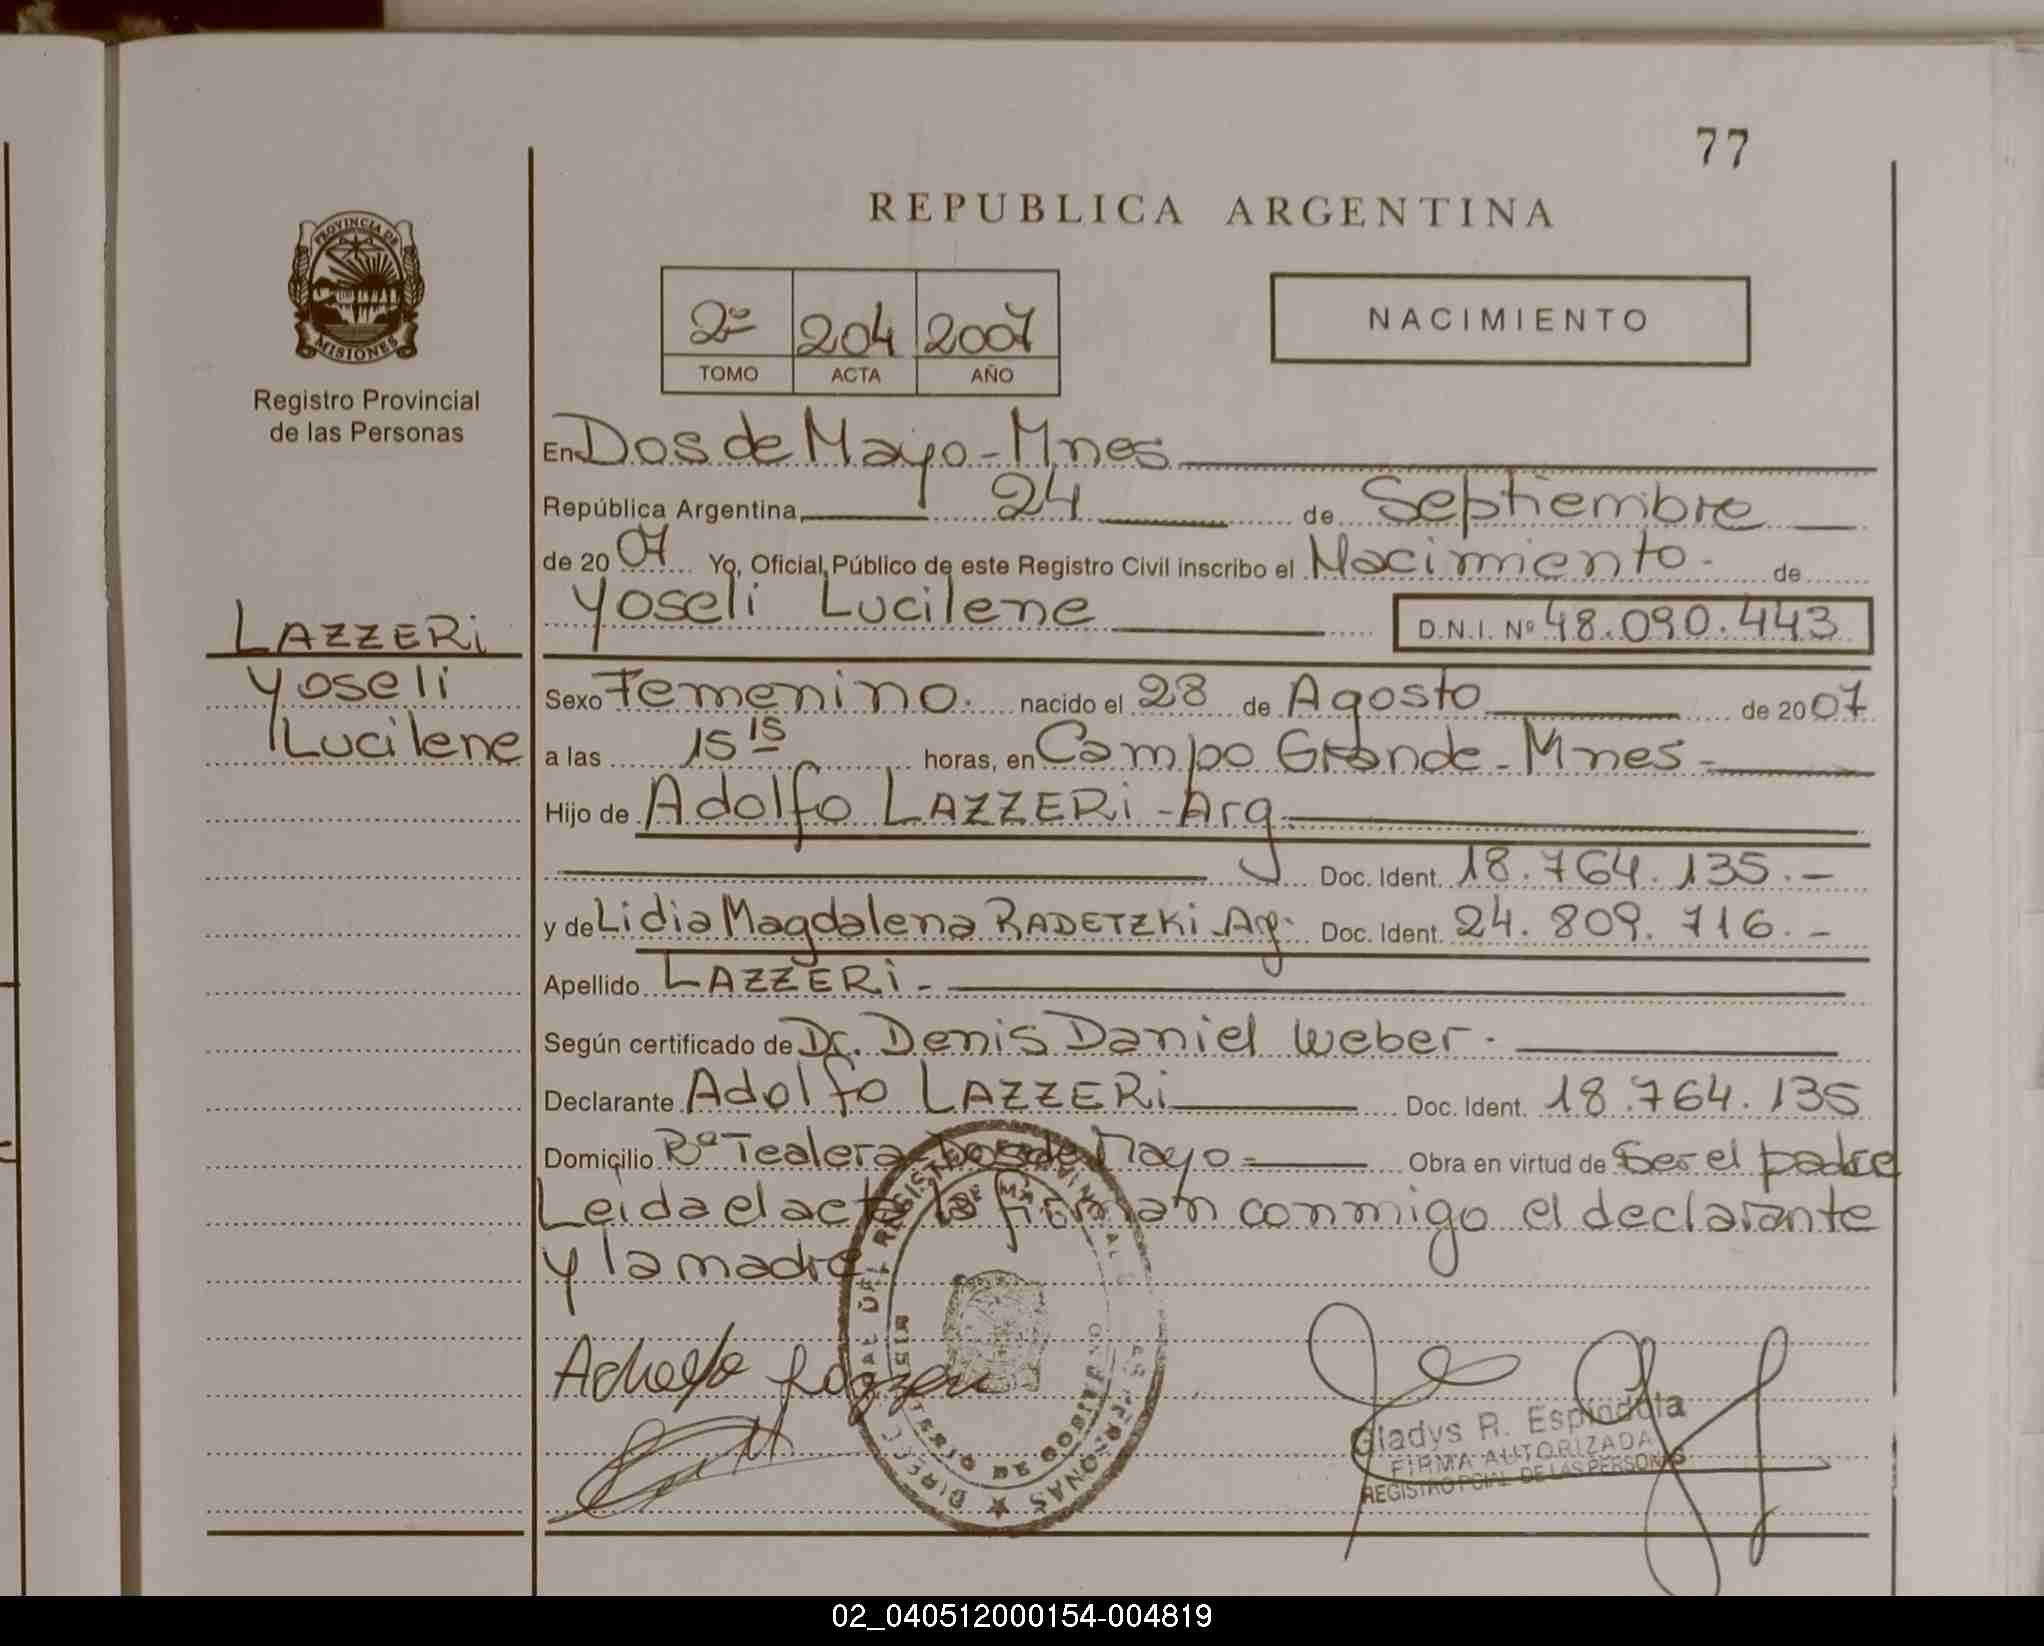 77
REPUBLICA ARGENTINA
PROVINCIA DE
MISIONES
Registro Provincial
de las Personas
2º 204 2007
TOMO ACTA AÑO
NACIMIENTO
En Dos de Mayo - Mnes
República Argentina, 24 de Septiembre
de 2007 Yo, Oficial Público de este Registro Civil inscribo el Nacimiento - de
Yoseli Lucilene D.N.I. Nº 48.090.443
LAZZERi
Yoseli
Lucilene
Sexo Femenino. nacido el 28 de Agosto de 2007
a las 15 15 horas, en Campo Grande - Mnes -
Hijo de Adolfo LAZZERi - Arg.
Doc. Ident. 18.764.135.-
y de Lidia Magdalena RADETZKi - Arg. Doc. Ident. 24.809.716.-
Apellido LAZZERi -
Según certificado de Dr. Denis Daniel Weber.
Declarante Adolfo LAZZERi Doc. Ident. 18.764.135
Domicilio Bº Tealera Dos de Mayo - Obra en virtud de Ser el padre
Leida el acta la firman conmigo el declarante
y la madre
Gladys R. Espíndola
FIRMA AUTORIZADA
REGISTRO PCIAL DE LAS PERSONAS
02_040512000154-004819